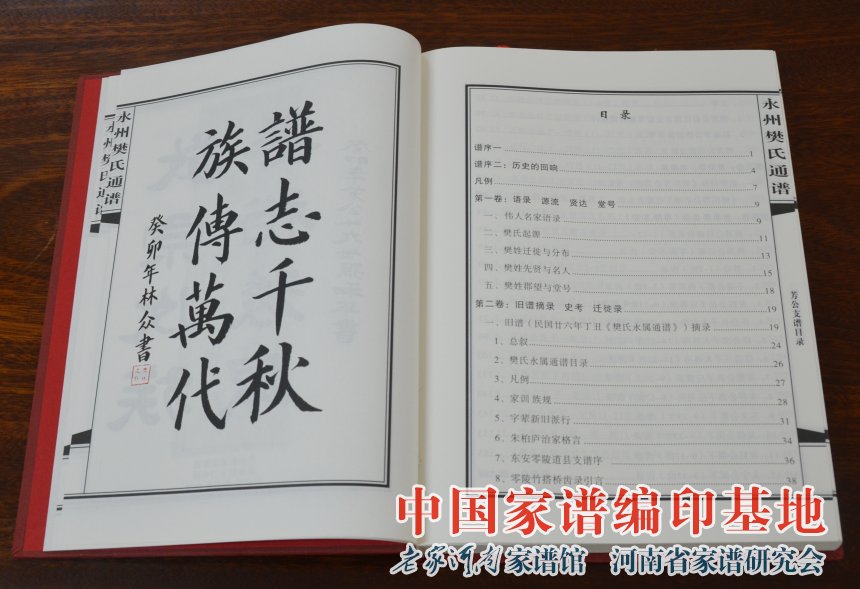 譜志千秋
族傳萬代
癸卯年林众書
永州樊氏通谱
永州樊氏通谱
目 录
谱序一 1
谱序二：历史的回响 4
凡例 7
第一卷：语录 源流 贤达 堂号 9
一、伟人名家语录 9
二、樊氏起源 11
三、樊姓迁徙与分布 13
四、樊姓先贤与名人 15
五、樊姓郡望与堂号 18
第二卷：旧谱摘录 史考 迁徙录 19
一、旧谱（民国廿六年丁丑《樊氏永属通谱》）摘录 19
1、总叙 21
2、樊氏永属通谱目录 26
3、凡例 27
4、家训 族规 28
5、字辈新旧派行 31
6、朱柏庐治家格言 34
7、东安零陵道县支谱序 36
8、零陵竹搭桥齿录引言 38
永州樊氏通谱
芳公支谱目录
中国家谱编印基地
老家河南家谱馆 河南省家谱研究会